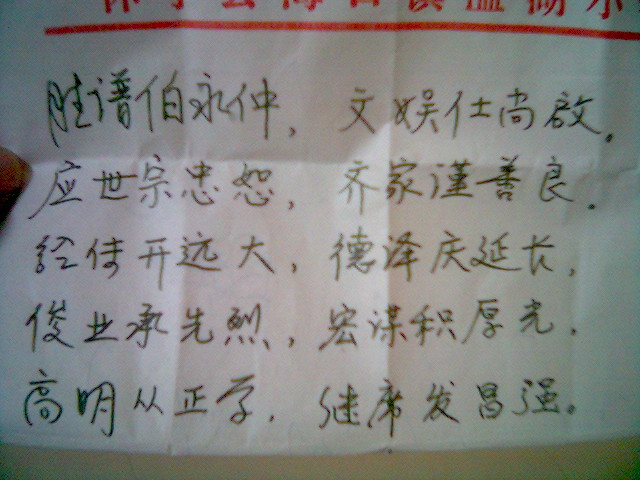 胜谱伯永仲，文娱仕尚启。
应世宗忠恕，齐家谨善良。
给传开远大，德泽庆延长，
俊业承先烈，宏谋积厚光．
高明从正学．继席发昌强。